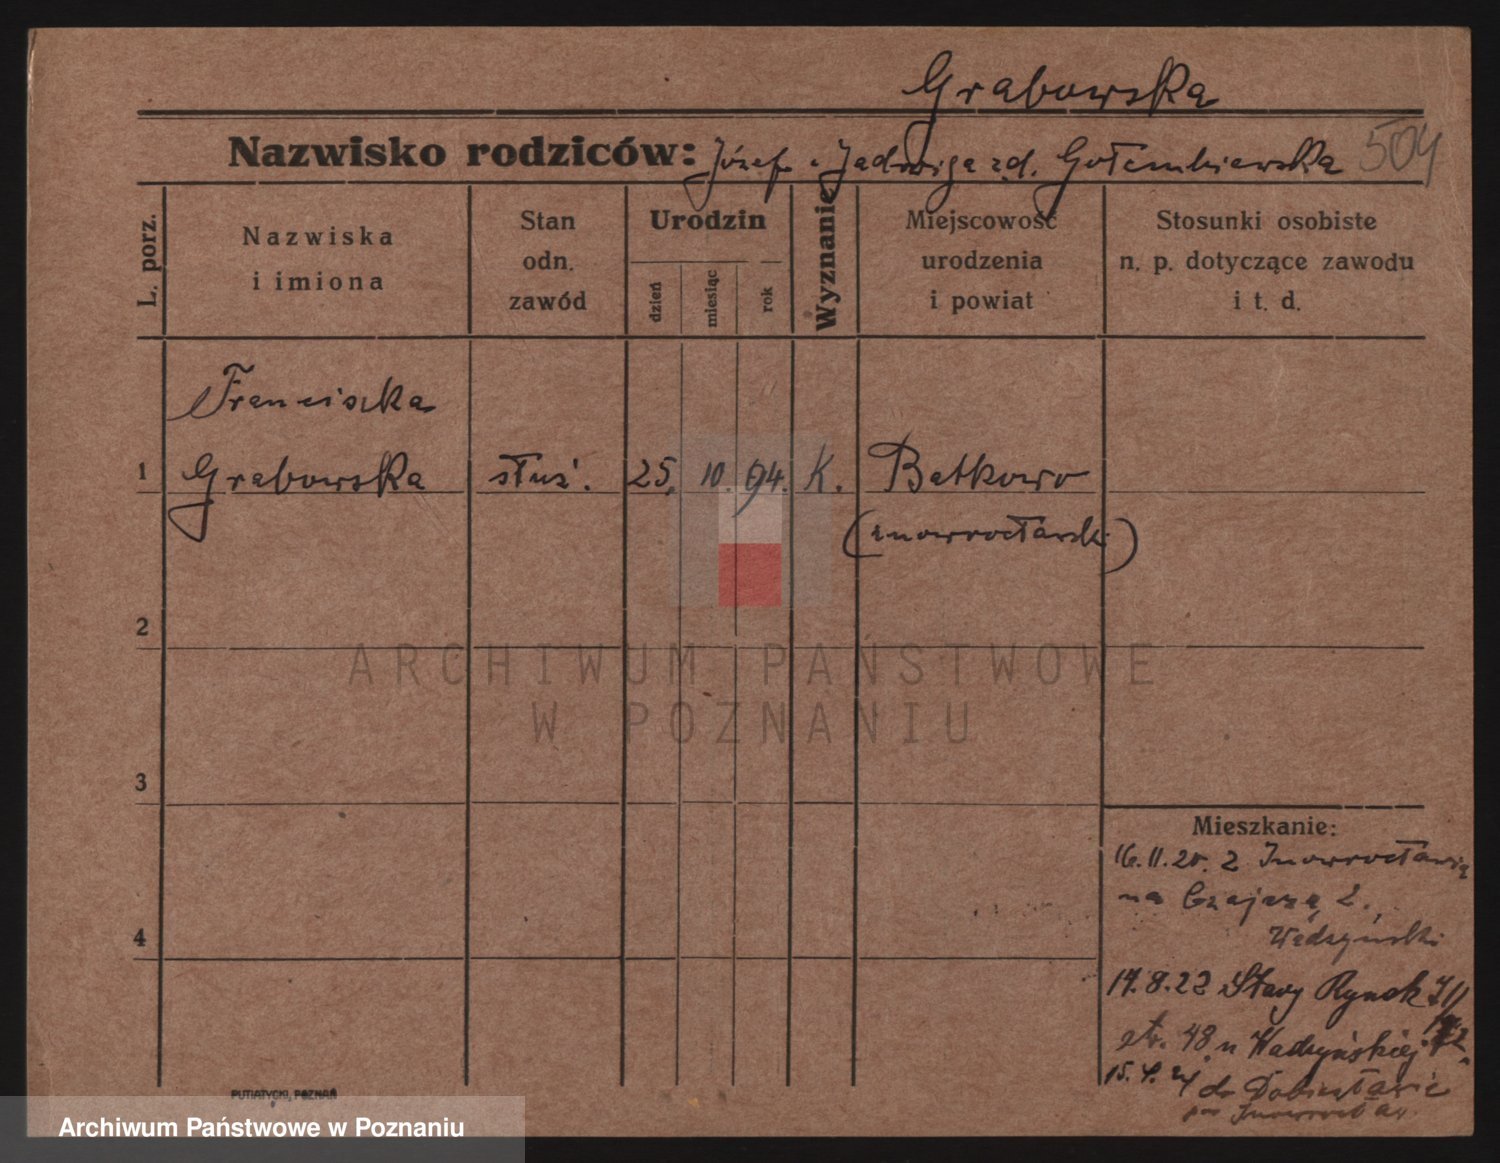 Grabowska
Nazwisko rodziców: Józef i Jadwiga zd. Gołembiewska 504
L. porz.
Nazwiska i imiona
Stan odn. zawód
Urodzin
dzień
miesiąc
rok
Wyznanie
Miejscowość urodzenia i powiat
Stosunki osobiste n. p. dotyczące zawodu i t. d.
Franciszka
1 Grabowska służ. 25. 10. 94. K. Batkowo
(inowrocławski)
2
3
4
ARCHIWUM PAŃSTWOWE
W POZNANIU
Mieszkanie:
16.11.20. z Inowrocławia
na
17.8.22 Stary Rynek
str. 48
15.4.24 do
Inowrocław
PUTIATYCKI, POZNAŃ
Archiwum Państwowe w Poznaniu